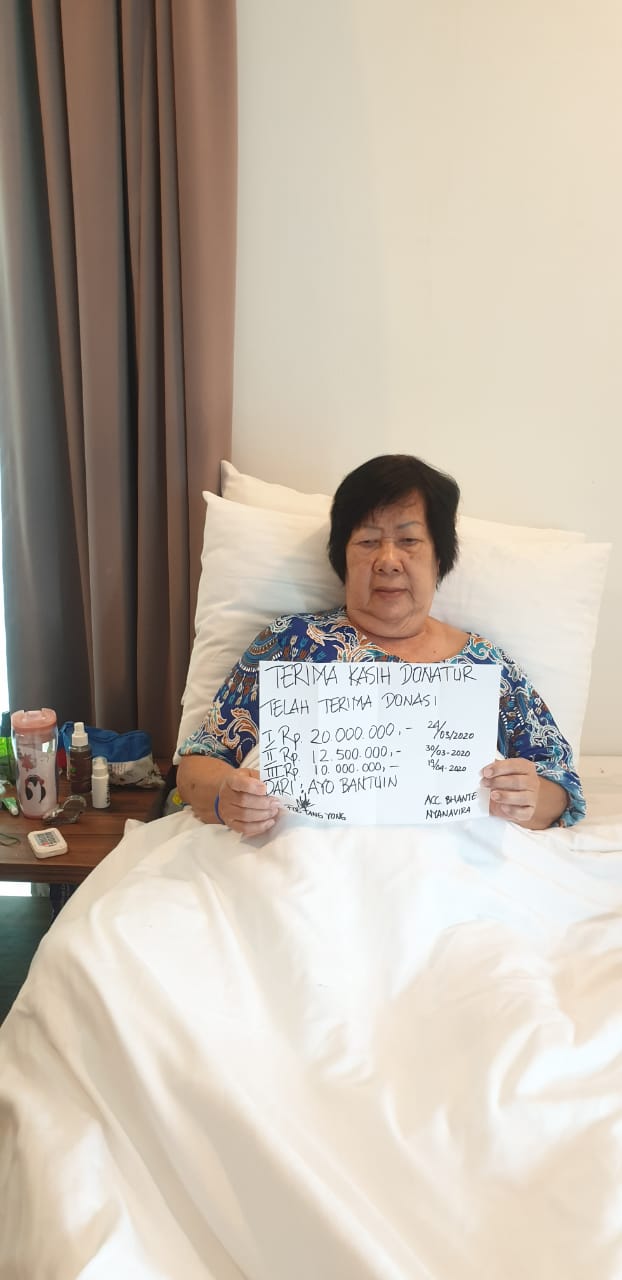 TERIMA KASIH DONATUR
TELAH TERIMA DONASI
I Rp. 20.000.000,- 24/03/2020
II Rp. 12.500.000,- 30/03-2020
III Rp. 10.000.000,- 19/04-2020
DARI : AYO BANTUIN
TANG YONG
ACC. BHANTE
NYANAVIRA